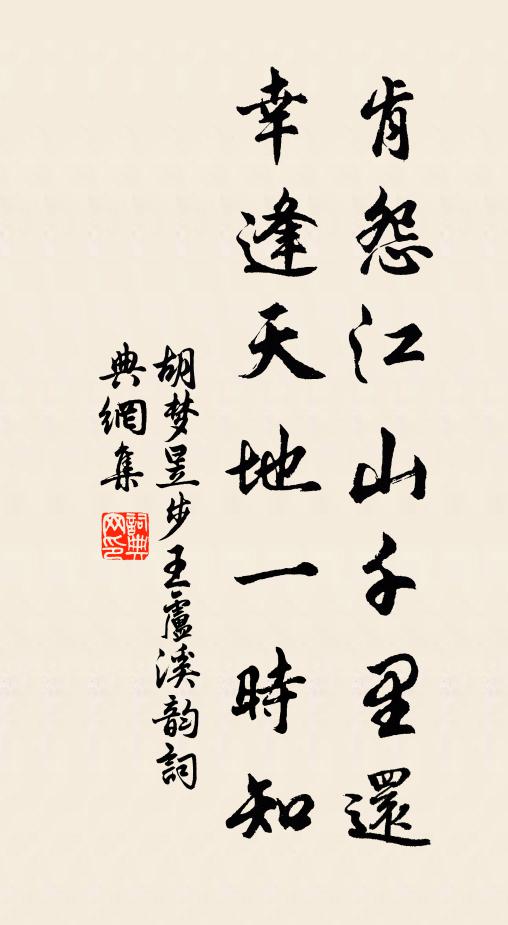 肯怨江山千里還
幸逢天地一時知
胡梦昱步王盧溪韵詞
典網集
詞典网印